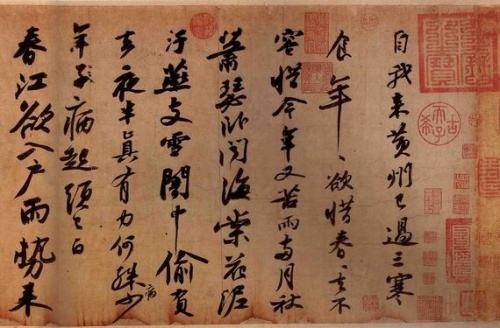 自我來黃州已過三寒
食年〻欲惜春〻去不
容惜今年又苦雨兩月秋
蕭瑟臥聞海棠花泥
汙燕支雪闇中偷負
去夜半真有力何殊少
病
年子病起頭已白
春江欲入戶雨勢來
古希天子